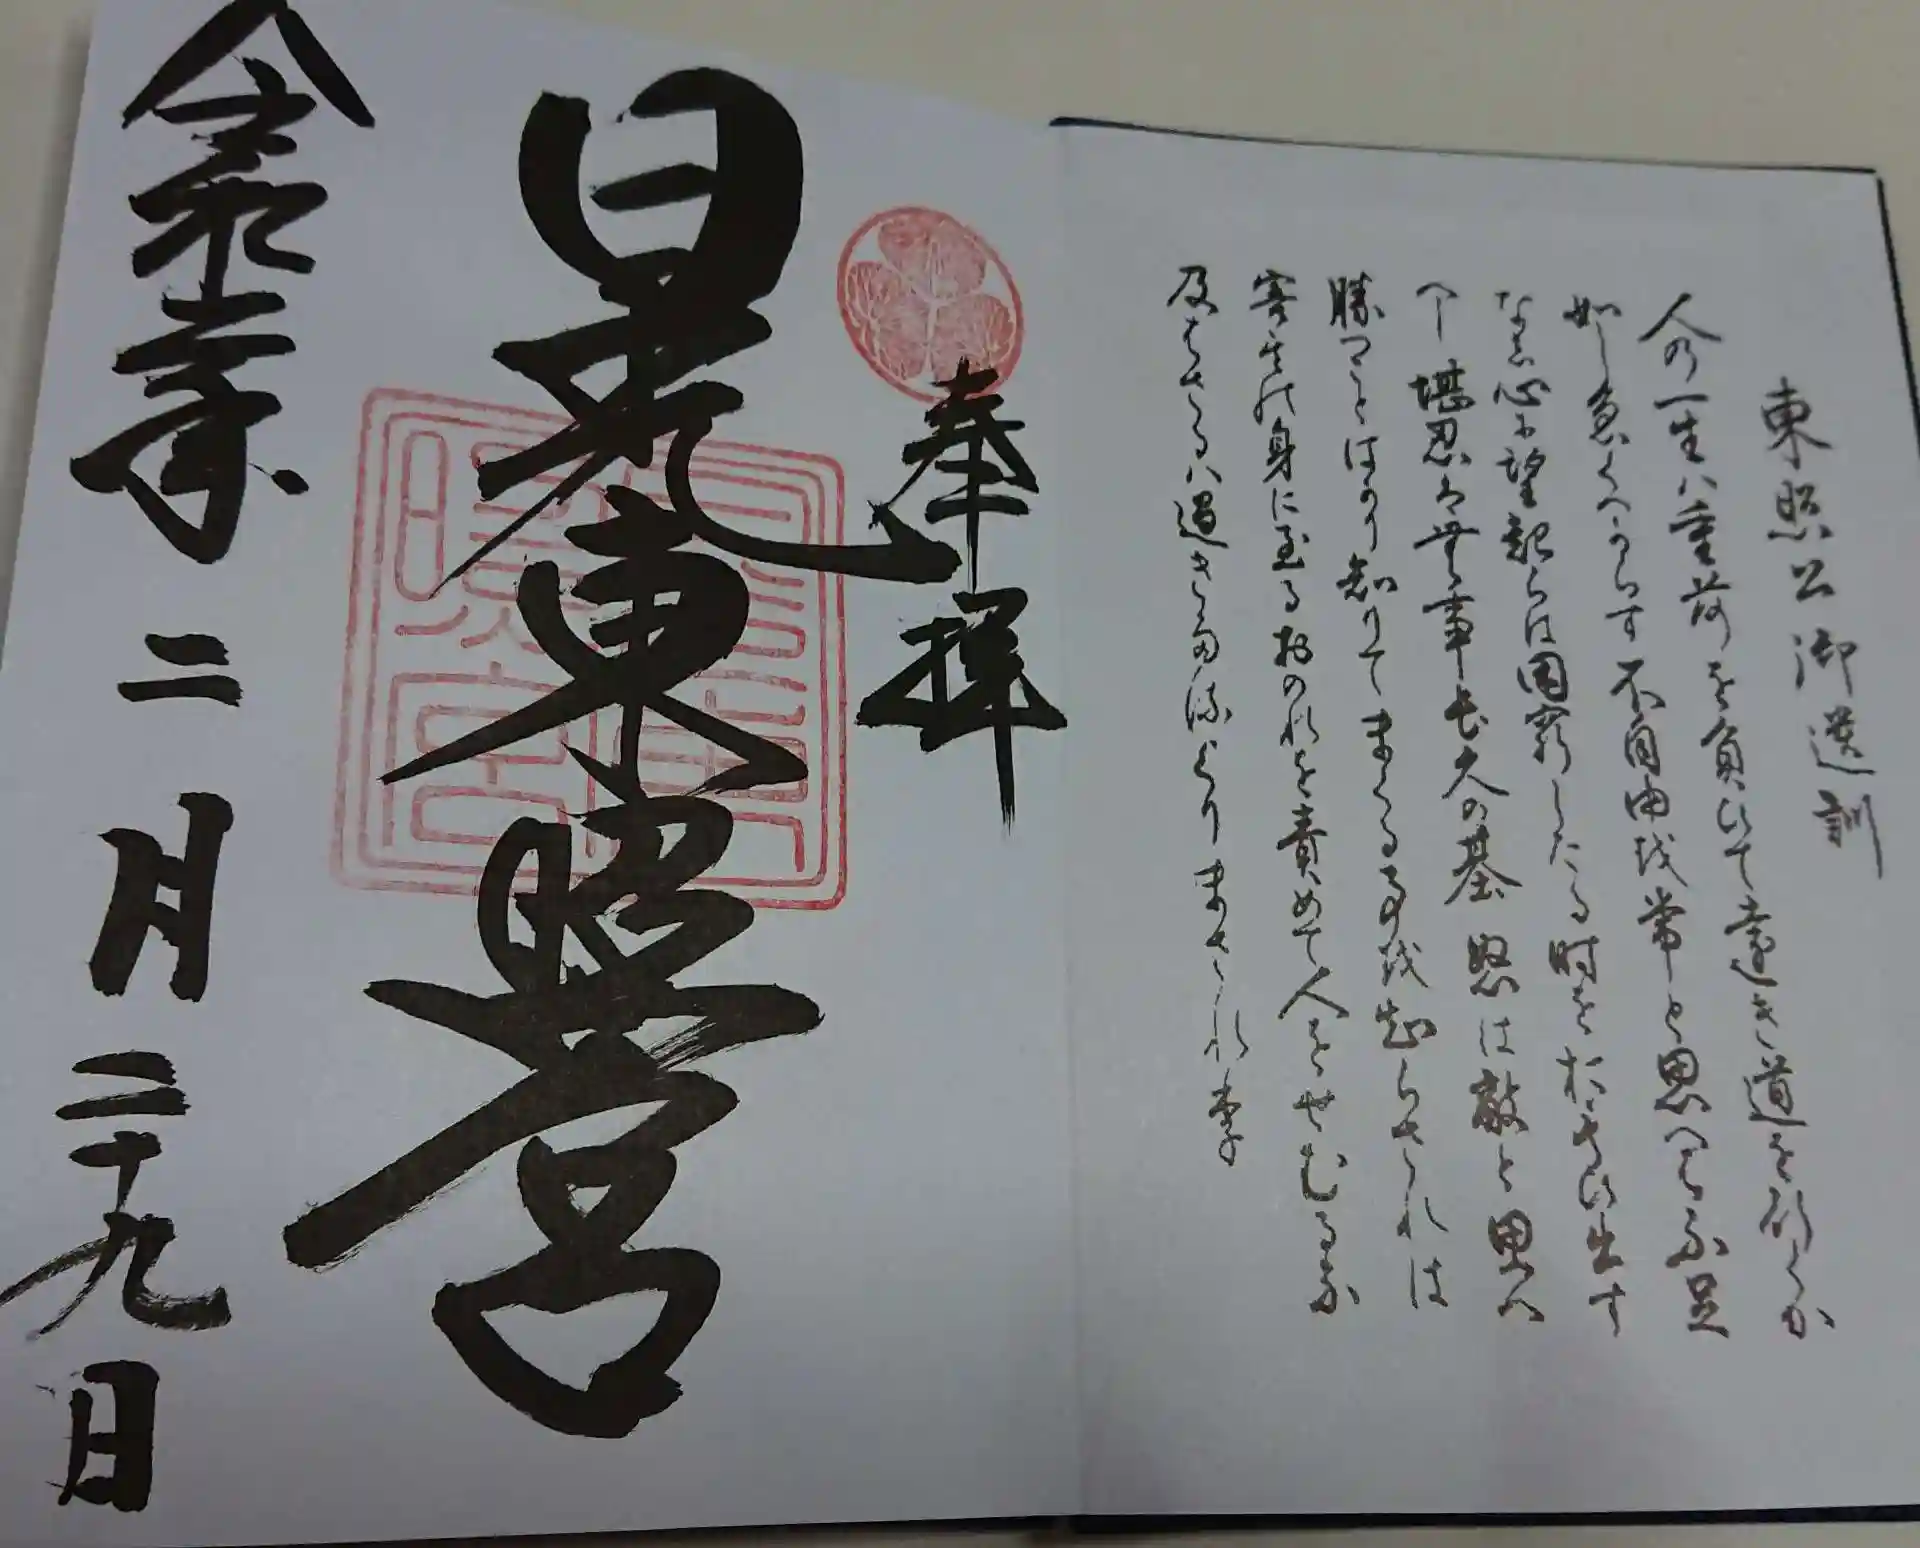 東照公御遺訓
人の一生は重荷を負ひて遠き道を行くか
如し急くへからす不自由を常と思へは不足
なし心に望起らは困窮したる時を思ひ出す
へし堪忍は無事長久の基怒は敵と思へ
勝つことはかり知りてまくる事を知らされは
害其の身に至るおのれを責めて人をせむるな
及はさるは過きたるよりまされり
奉拝
日光東照宮
令和二年二月二十九日